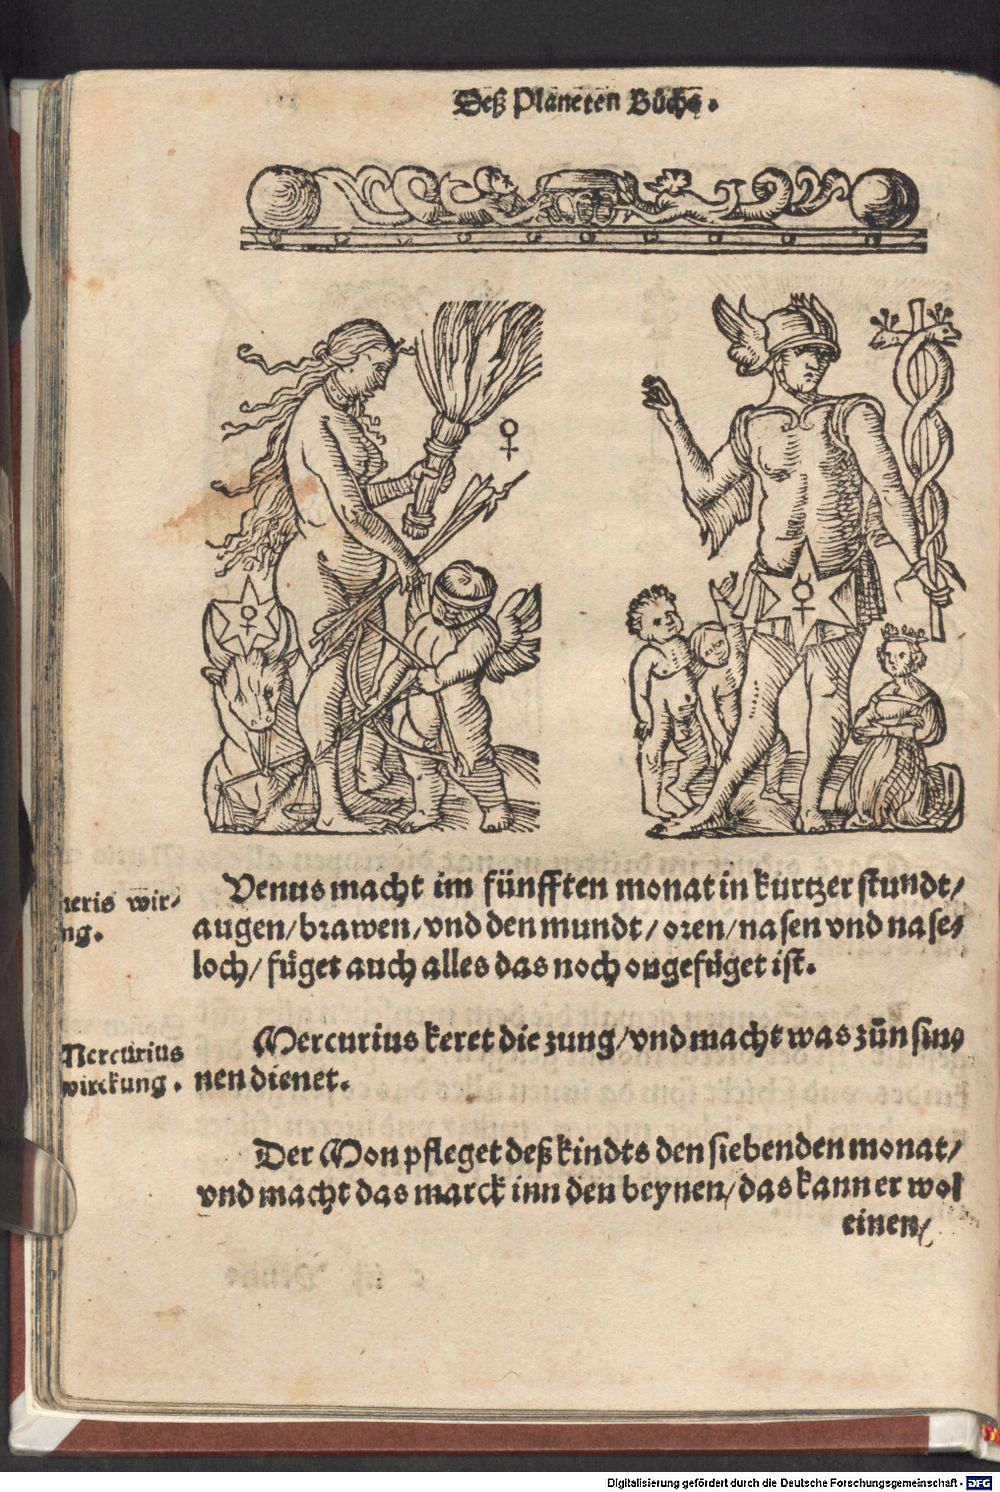 Deß Planeten Bůchs.
neris wir-
ng.
Venus macht im fünfften monat in kurtzer stundt/
augen/brawen/vnd den mundt/oren/nasen vnd nase-
loch/füget auch alles das noch ongefüget ist.
Mercurius
wirckung.
Mercurius keret die zung/vnd macht was zůn sin-
nen dienet.
Der Mon pfleget deß kindts den siebenden monat/
vnd macht das marck inn den beynen/das kann er wol
einen/
Digitalisierung gefördert durch die Deutsche Forschungsgemeinschaft - DFG